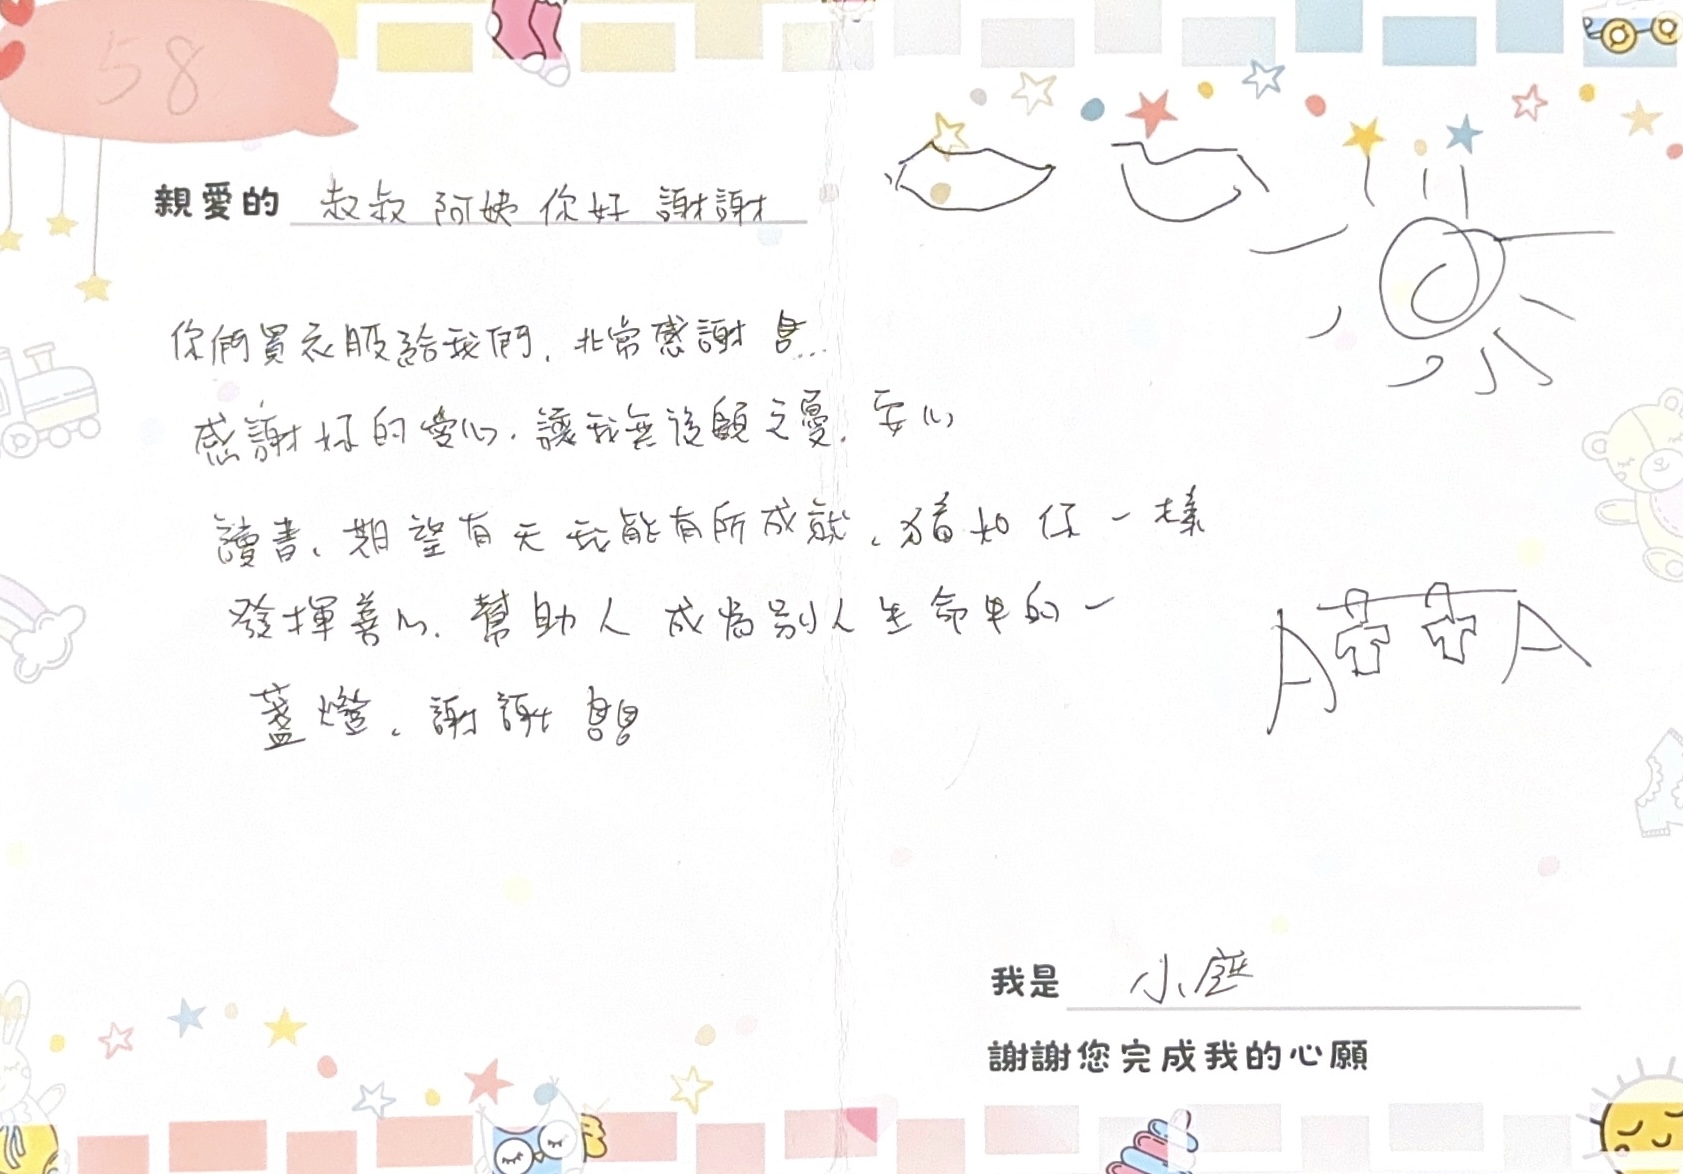 58
親愛的 叔叔 阿姨 你好 謝謝
你們買衣服給我們，非常感謝…
感謝好的愛心，讓我無後顧之憂，安心
讀書，期望有天我能有所成就，猶如你一樣
發揮善心，幫助人 成為別人生命中的一
盞燈，謝謝
我是 小庭
謝謝您完成我的心願